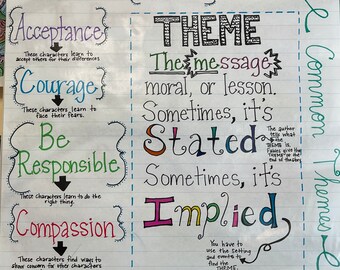 Acceptance
These characters learn to
accept others for their differences.
Courage
These characters learn to
face their fears.
Be
Responsible
These characters learn to do the
right thing.
Compassion
These characters find ways to
show concern for other characters
THEME
The message
moral, or lesson.
Sometimes, it's
Stated
The author
tells what
the
THEME is.
Sometimes, it's
Implied
You have to
use the setting
and events to
find the
THEME.
Common Themes